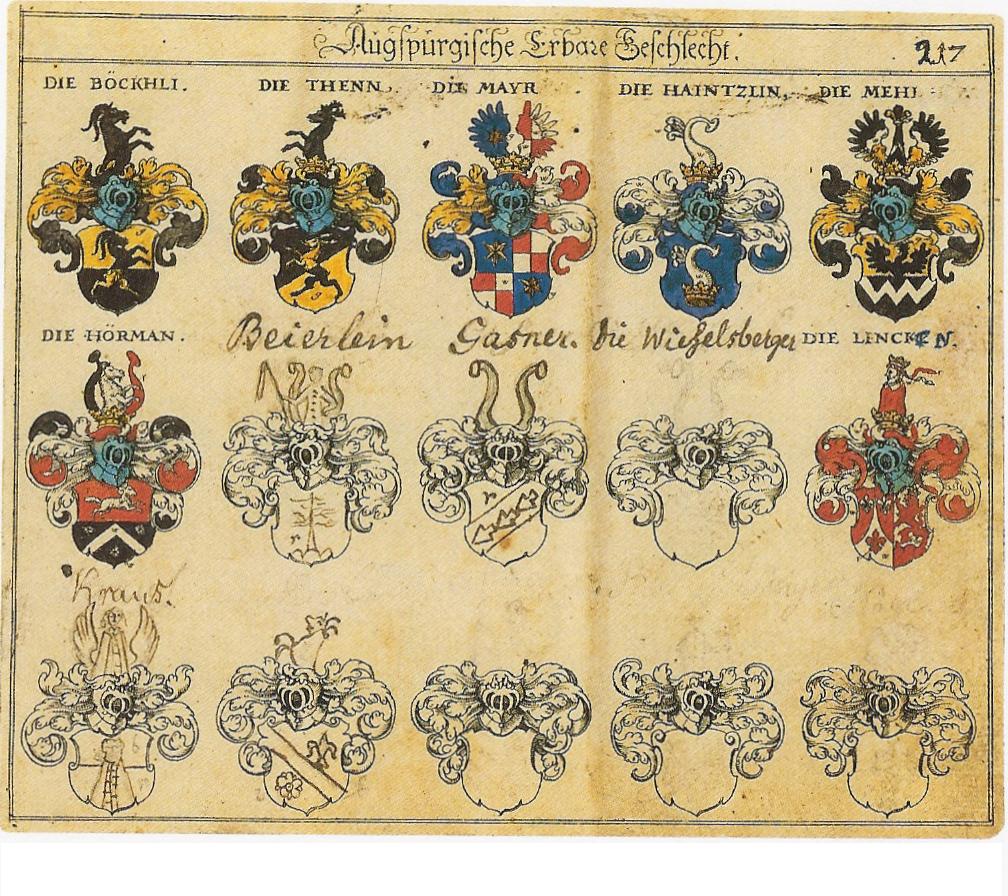 Augspurgische Erbare Geschlecht. 217
DIE BÖCKHLI. DIE THENN. DIE MAYR. DIE HAINTZLIN. DIE MEHL
DIE HÖRMAN. Beierlein Gasner. Die Wieselsberger DIE LINCKEN.
Kraus.